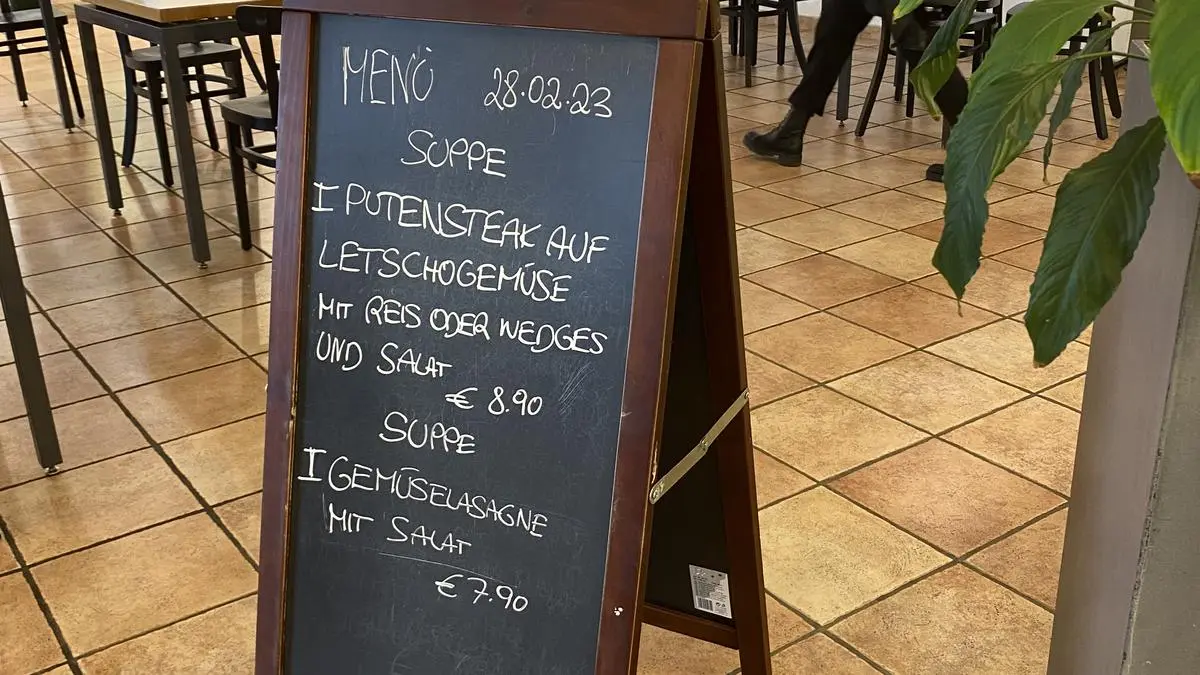 MENÜ 28.02.23
SUPPE
I PUTENSTEAK AUF
LETSCHOGEMÜSE
MIT REIS ODER WEDGES
UND SALAT
€ 8.90
SUPPE
I GEMÜSELASAGNE
MIT SALAT
€ 7.90